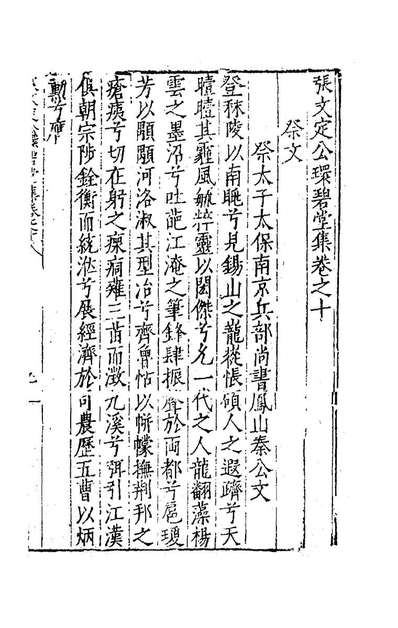 張文定公環碧堂集卷之十
祭文
祭太子太保南京兵部尚書鳳山秦公文
登秣陵以南眺兮見錫山之巃嵷悵碩人之遐躋兮天
曀曀其霾風毓粹靈以閎傑兮允一代之人龍翻藻楊
雲之墨沼兮吐葩江淹之筆鋒肆振聲於両都兮扈瓊
芳以顒顒河洛淑其型冶兮齊魯怙以帡幪撫荆邦之
瘡痍兮切在躬之瘝痌雍三苗而澂九溪兮弭引江漢
俱朝宗陟銓衡而統淮兮展經濟於司農歷五曹以炳
勳兮